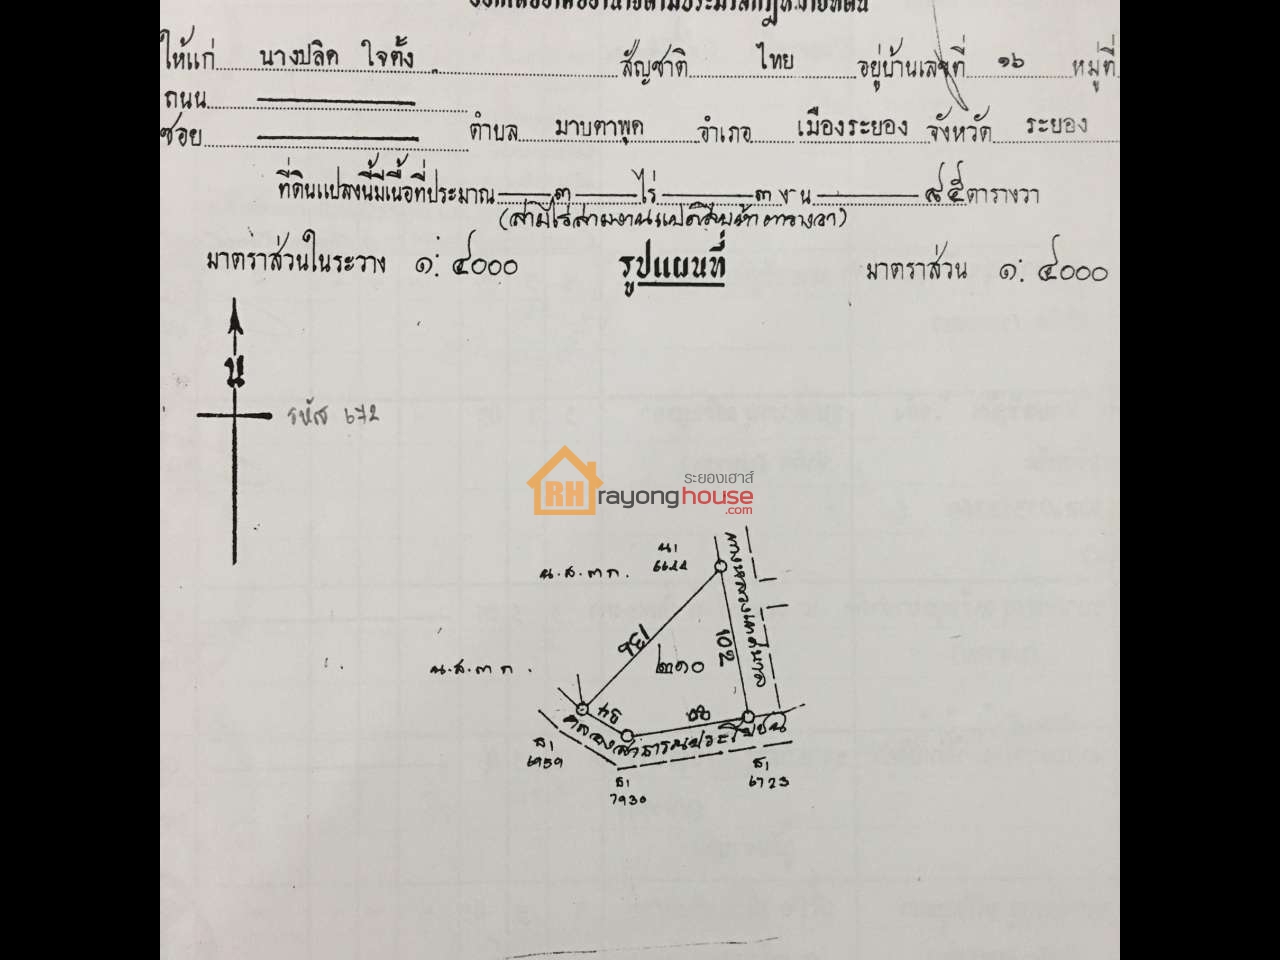 ให้แก่ นางปลิด ใจตั้ง สัญชาติ ไทย อยู่บ้านเลขที่ ๑๖ หมู่ที่
ถนน
ซอย ตำบล มาบตาพุด อำเภอ เมืองระยอง จังหวัด ระยอง
ที่ดินแปลงนี้มีเนื้อที่ประมาณ ๓ ไร่ ๓ งาน ๘๕ ตารางวา
(สามไร่สามงานแปดสิบห้าตารางวา)
มาตราส่วนในระวาง ๑: ๔๐๐๐ รูปแผนที่ มาตราส่วน ๑: ๔๐๐๐
น
รหัส ๖72
ระยองเฮาส์
RH rayonghouse
.com
น.ส.๓ ก.
136
102
ทางหลวงเทศบาล
๒๑๐
น.ส.๓ ก.
คลองสาธารณประโยชน์
7930
6723